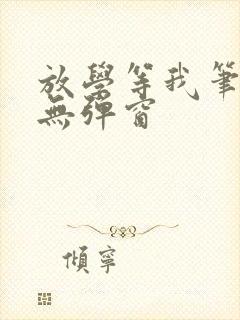 放學等我筆
無彈窗
傾寧